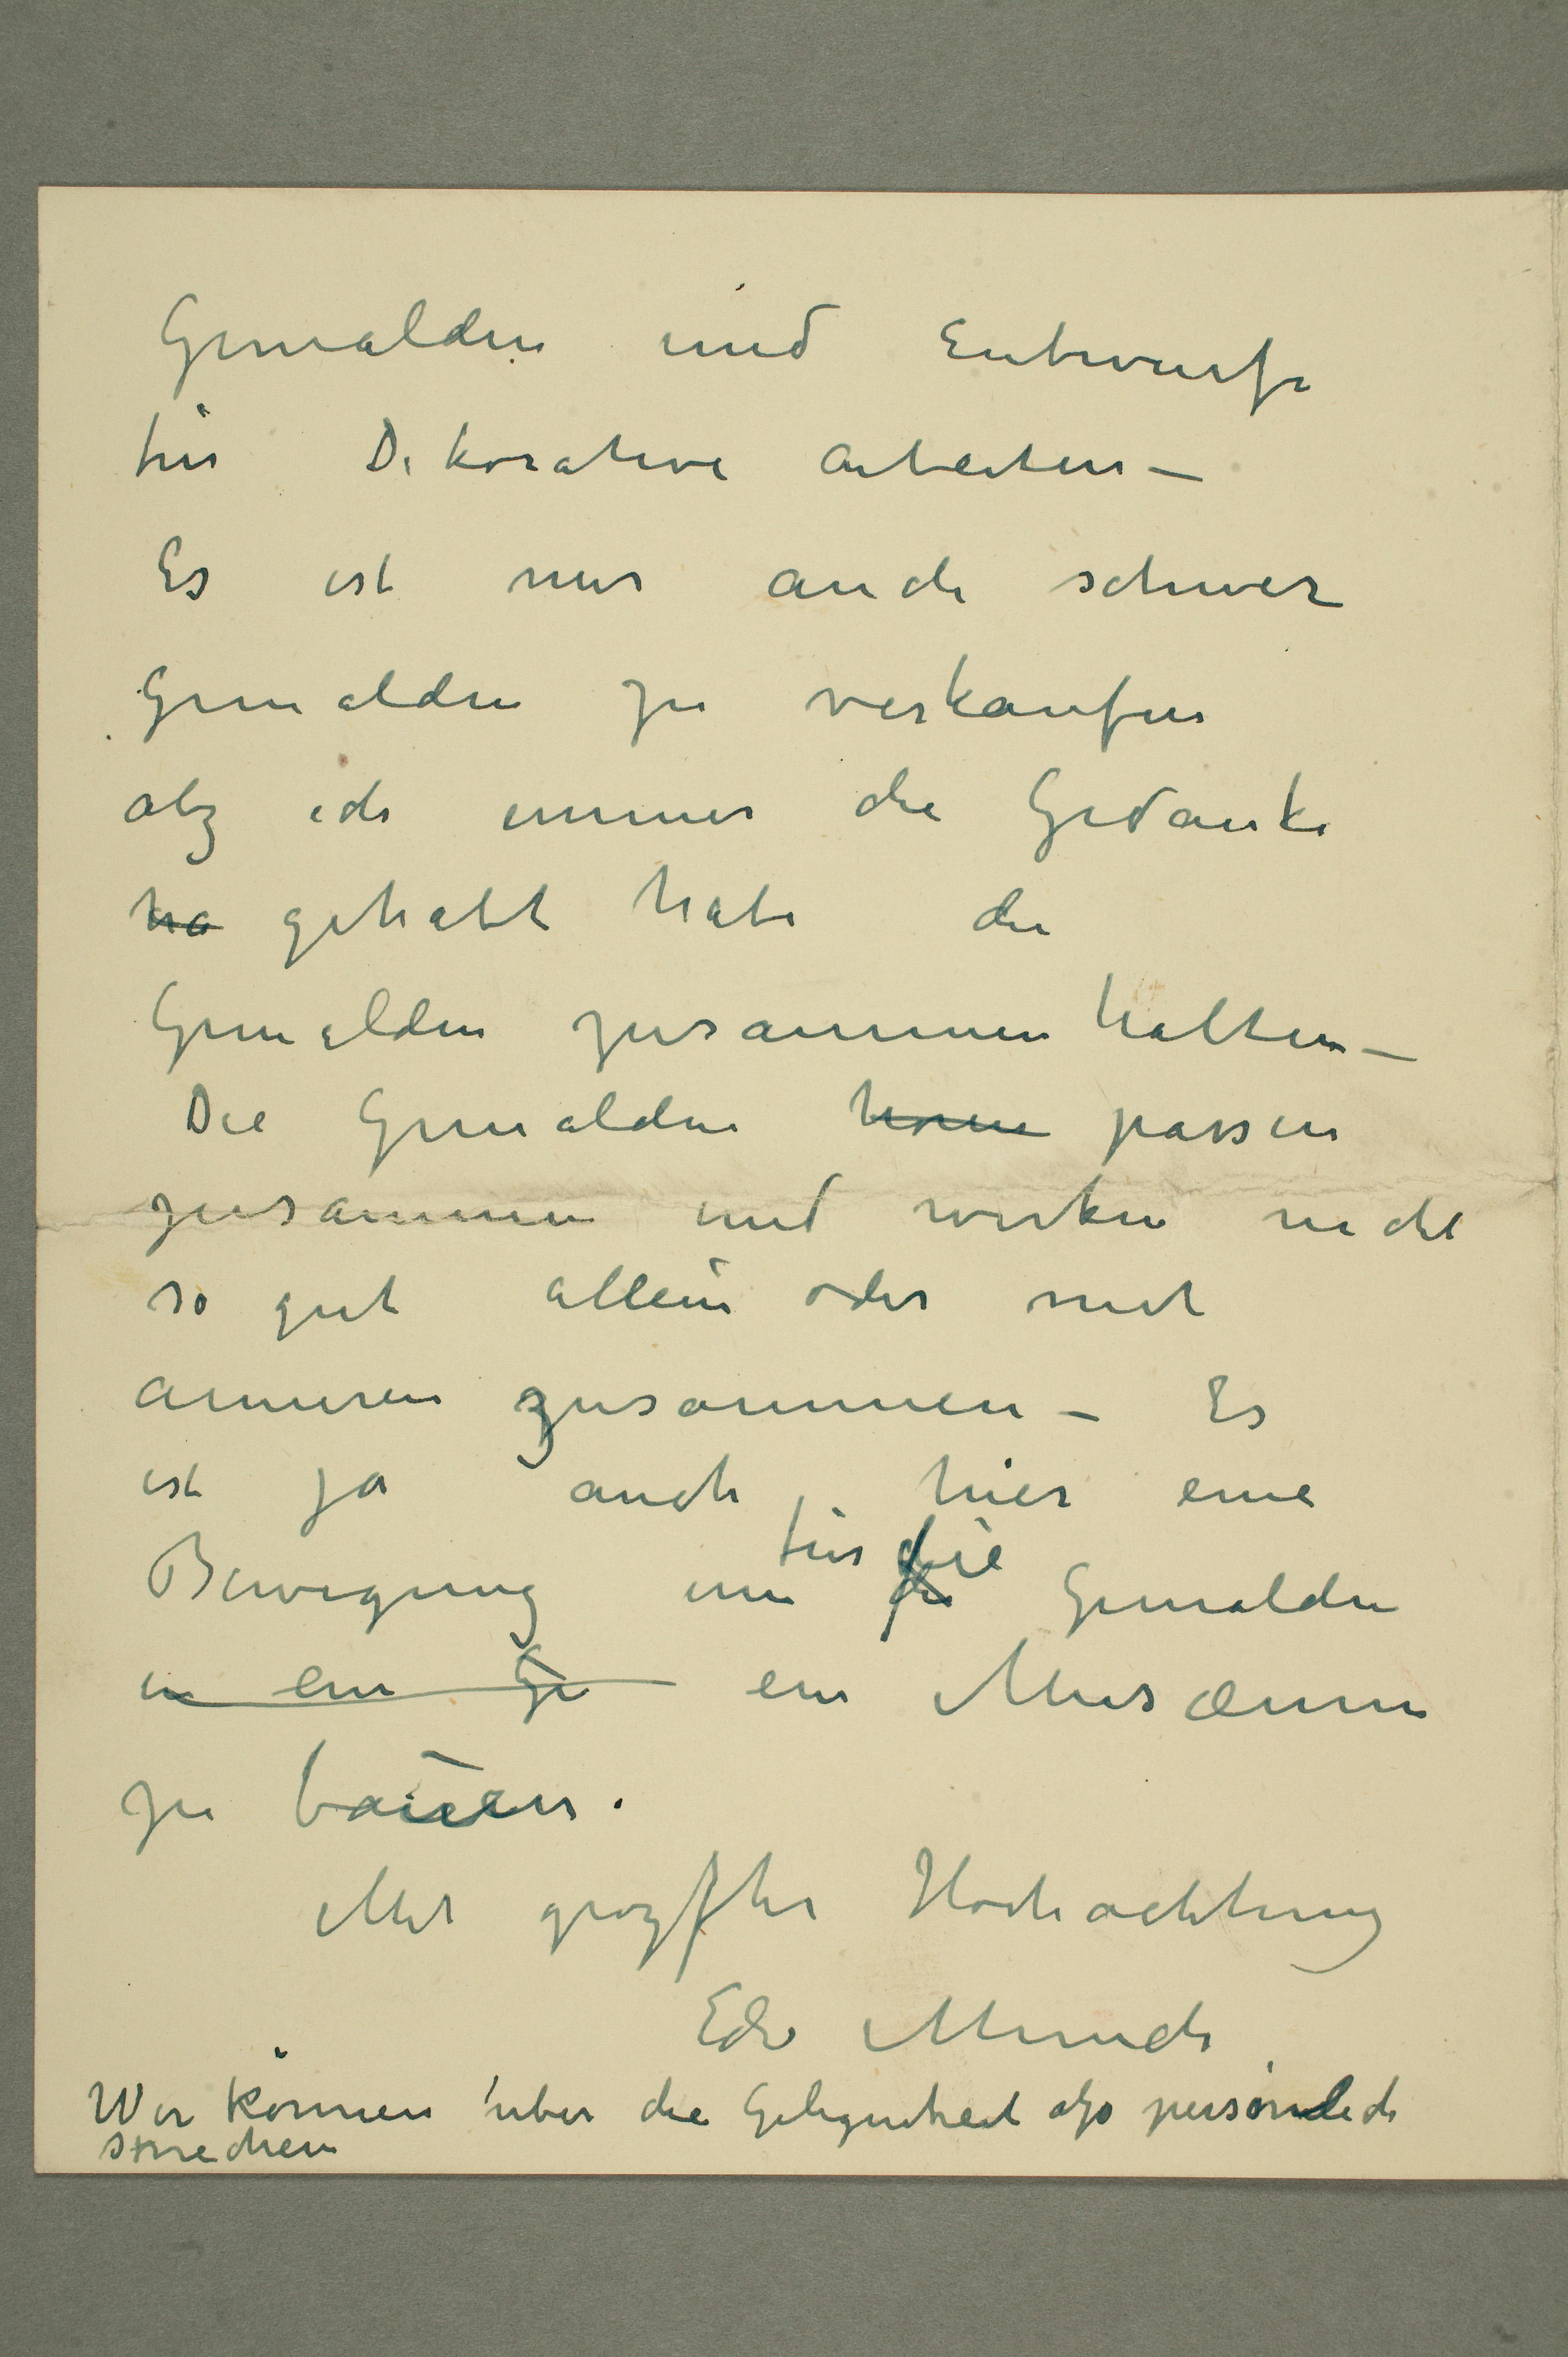 Gemälden und Entwurfe
für Dekorative Arbeiten –
Es ist mir auch schwer
Gemalden zu verkaufen
als ich immer die Gedanke
ha gehabt habe die
Gemalden zusammen halten –
Die Gemalden passen
zusammen und wirken nicht
so gut allein oder mit
anneren zusammen – Es
ist ja auch hier eine
Bewegung um für die Gemalden
in ein Ge ein Musæum
zu bauen.
Mit grozster Hochachtung
Edv Munch
Wir können über die Gelegenheit personlich
sprechen